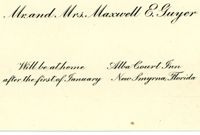 Mr. and Mrs. Maxwell E. Guyer
Will be at home
after the first of January
Alba Court Inn
New Smyrna, Florida